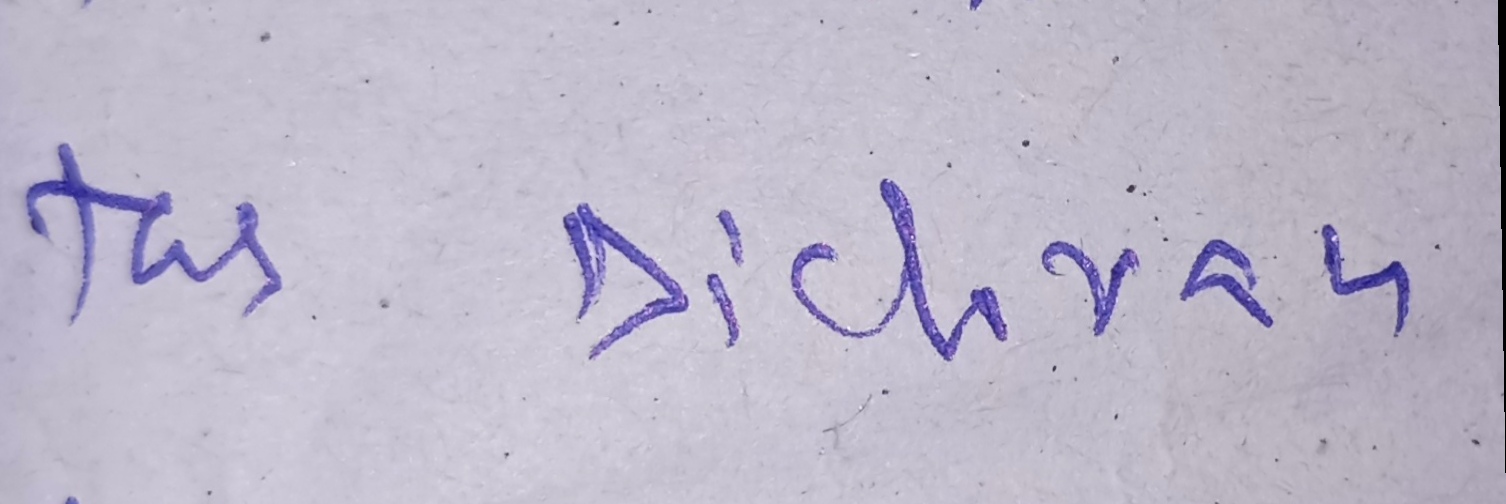 Tas Dichran